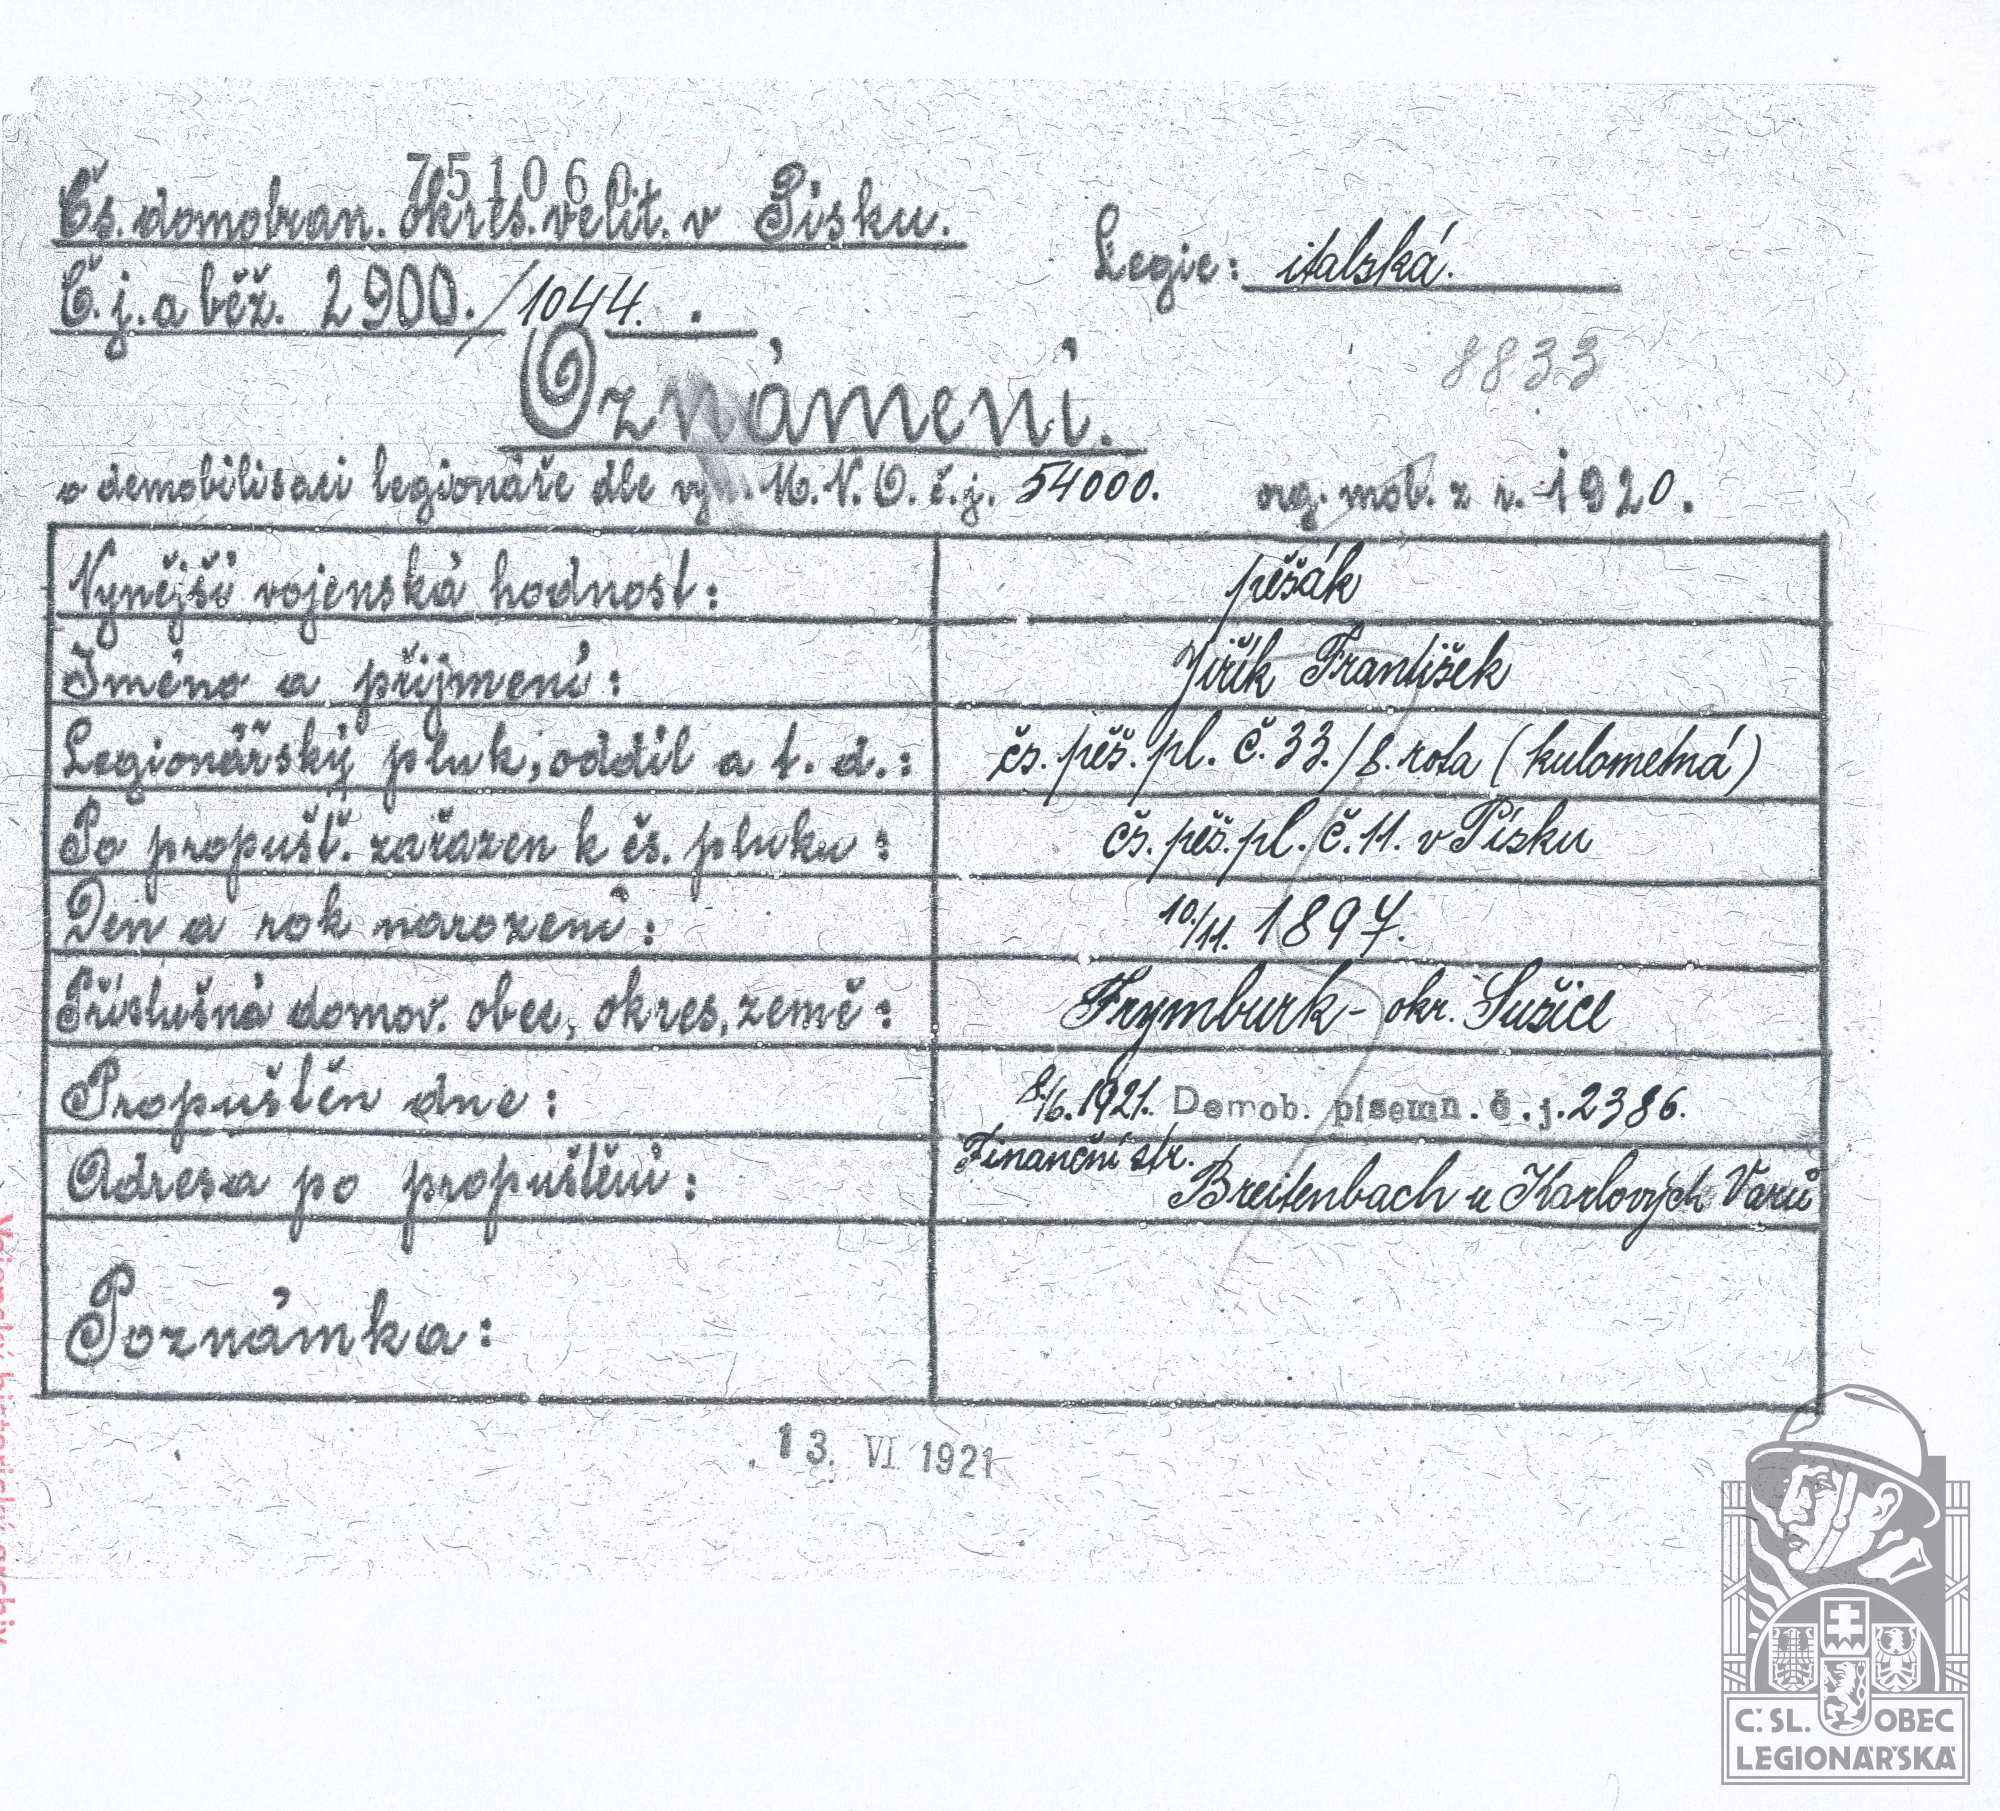 751060
Čs. domobran. okres. velit. v Písku.
Legie: italská.
Č. j. a běž. 2900./1044.
8833
Oznámení.
o demobilisaci legionáře dle M. N. O. č. j. 54000. org. mob. z r. 1920.
Nynější vojenská hodnost: pěšák
Jméno a příjmení: Jiřík František
Legionářský pluk, oddíl a t. d.: čs. pěš. pl. č. 33./8. rota (kulometná)
Po propušť. zařazen k čs. pluku: čs. pěš. pl. č. 11. v Písku
Den a rok narození: 10./11. 1897.
Příslušná domov. obec, okres, země: Frymburk - okr. Sušice
Propuštěn dne: 8./6. 1921. Demob. písemn. č. j. 2386.
Adresa po propuštění: Finanční str. Breitenbach u Karlových Varů
Poznámka:
13. VI 1921
Vojenský historický archiv
Č.SL. OBEC
LEGIONÁŘSKÁ